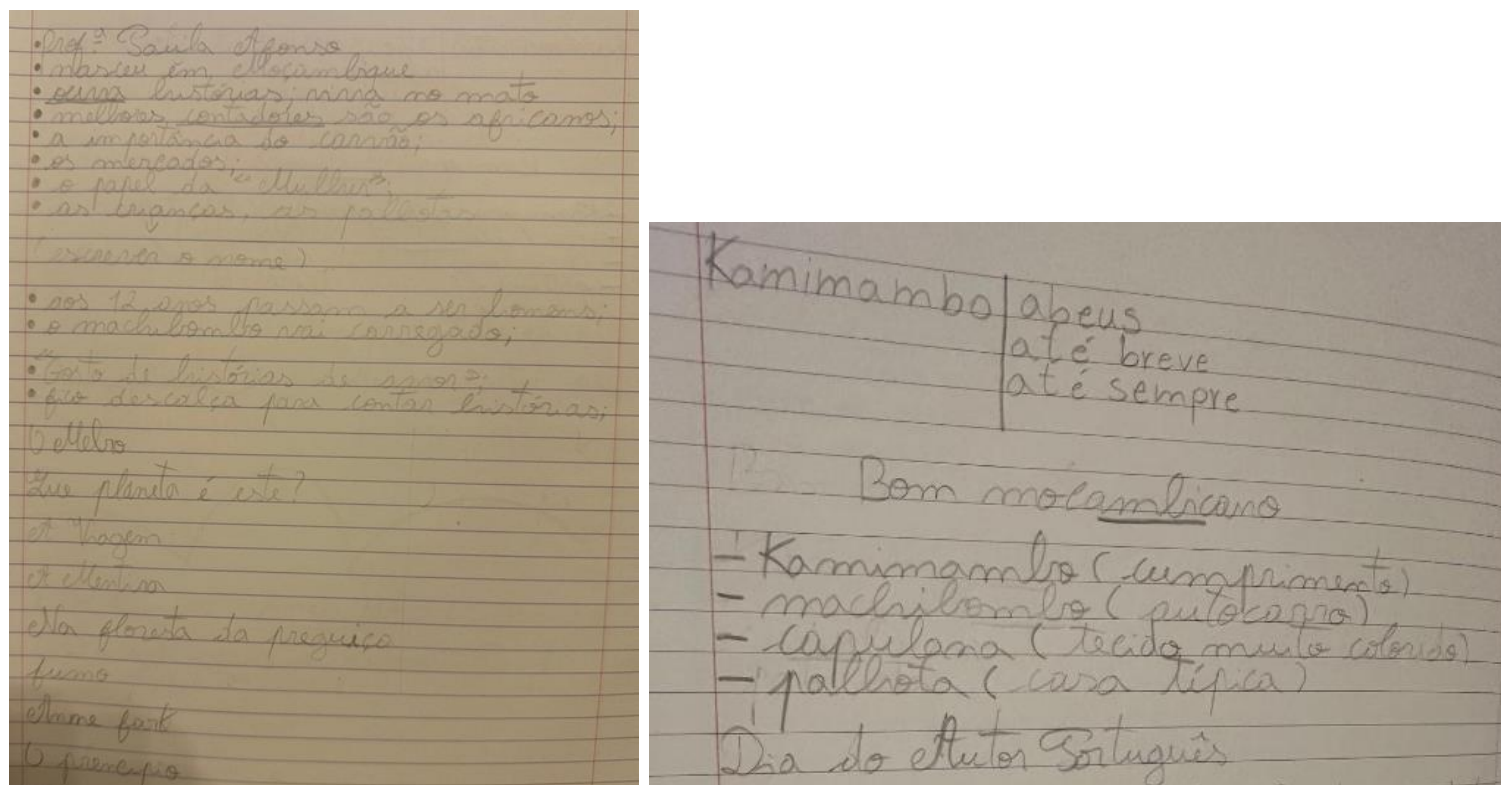 • Prof.ª Paula Afonso
• nasceu em Moçambique
• ouvia histórias; vivia no mato
• melhores contadores são os africanos;
• a importância do carvão;
• os mercados;
• o papel da "Mulher";
• as crianças, as palhotas
(escrever o nome)
• aos 12 anos passam a ser homens;
• o machibombo vai carregado;
• "Gosto de histórias de amor";
• fico descalça para contar histórias;
O Melro
Que planeta é este?
A Viagem
A Mentira
Na floresta da preguiça
fumo
Anne fank
O prencipio
Kamimambo abeus
até breve
até sempre
Bom moçamlicano
- Kamimambo (cumprimento)
- machibombo (autocarro)
- capulana (tecido muito colorido)
- palhota (casa típica)
Dia do Autor Português